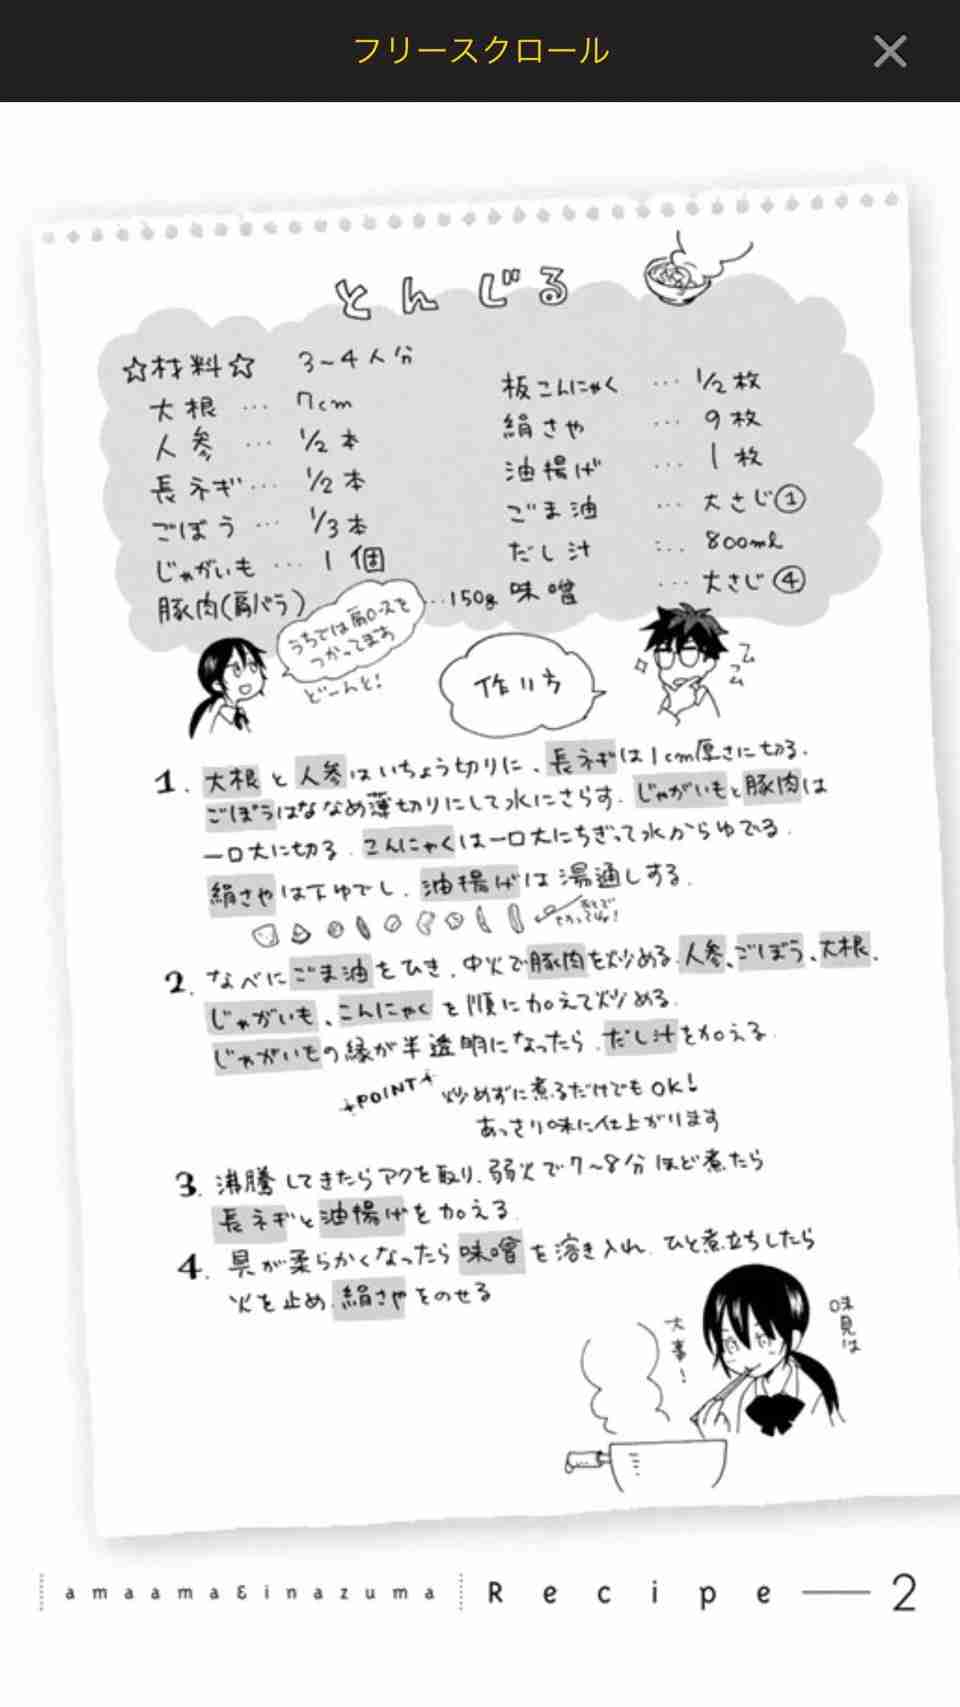 フリースクロール
とんじる
☆材料☆ 3~4人分
大根 … 7cm
人参 … 1/2本
長ネギ … 1/2本
ごぼう … 1/3本
じゃがいも … 1個
豚肉(肩バラ) …150g
板こんにゃく … 1/2枚
絹さや … 9枚
油揚げ … 1枚
ごま油 … 大さじ①
だし汁 … 800ml
味噌 … 大さじ④
うちでは肩ロースを
つかってます
どーんと!
作り方
フムフム
1. 大根と人参はいちょう切りに、長ネギは1cm厚さに切る.
ごぼうはななめ薄切りにして水にさらす.じゃがいもと豚肉は
一口大に切る.こんにゃくは一口大にちぎって水からゆでる.
絹さやは下ゆでし.油揚げは湯通しする.
2. なべにごま油をひき.中火で豚肉を炒める.人参、ごぼう、大根、
じゃがいも、こんにゃくを順に加えて炒める.
じゃがいもの縁が半透明になったら.だし汁を加える.
POINT 炒めずに煮るだけでもOK!
あっさり味に仕上がります
3. 沸騰してきたらアクを取り.弱火で7~8分ほど煮たら
長ネギと油揚げを加える.
4. 具が柔らかくなったら味噌を溶き入れ.ひと煮立ちしたら
火を止め.絹さやをのせる
味見は
大事!
amaama&inazuma Recipe — 2